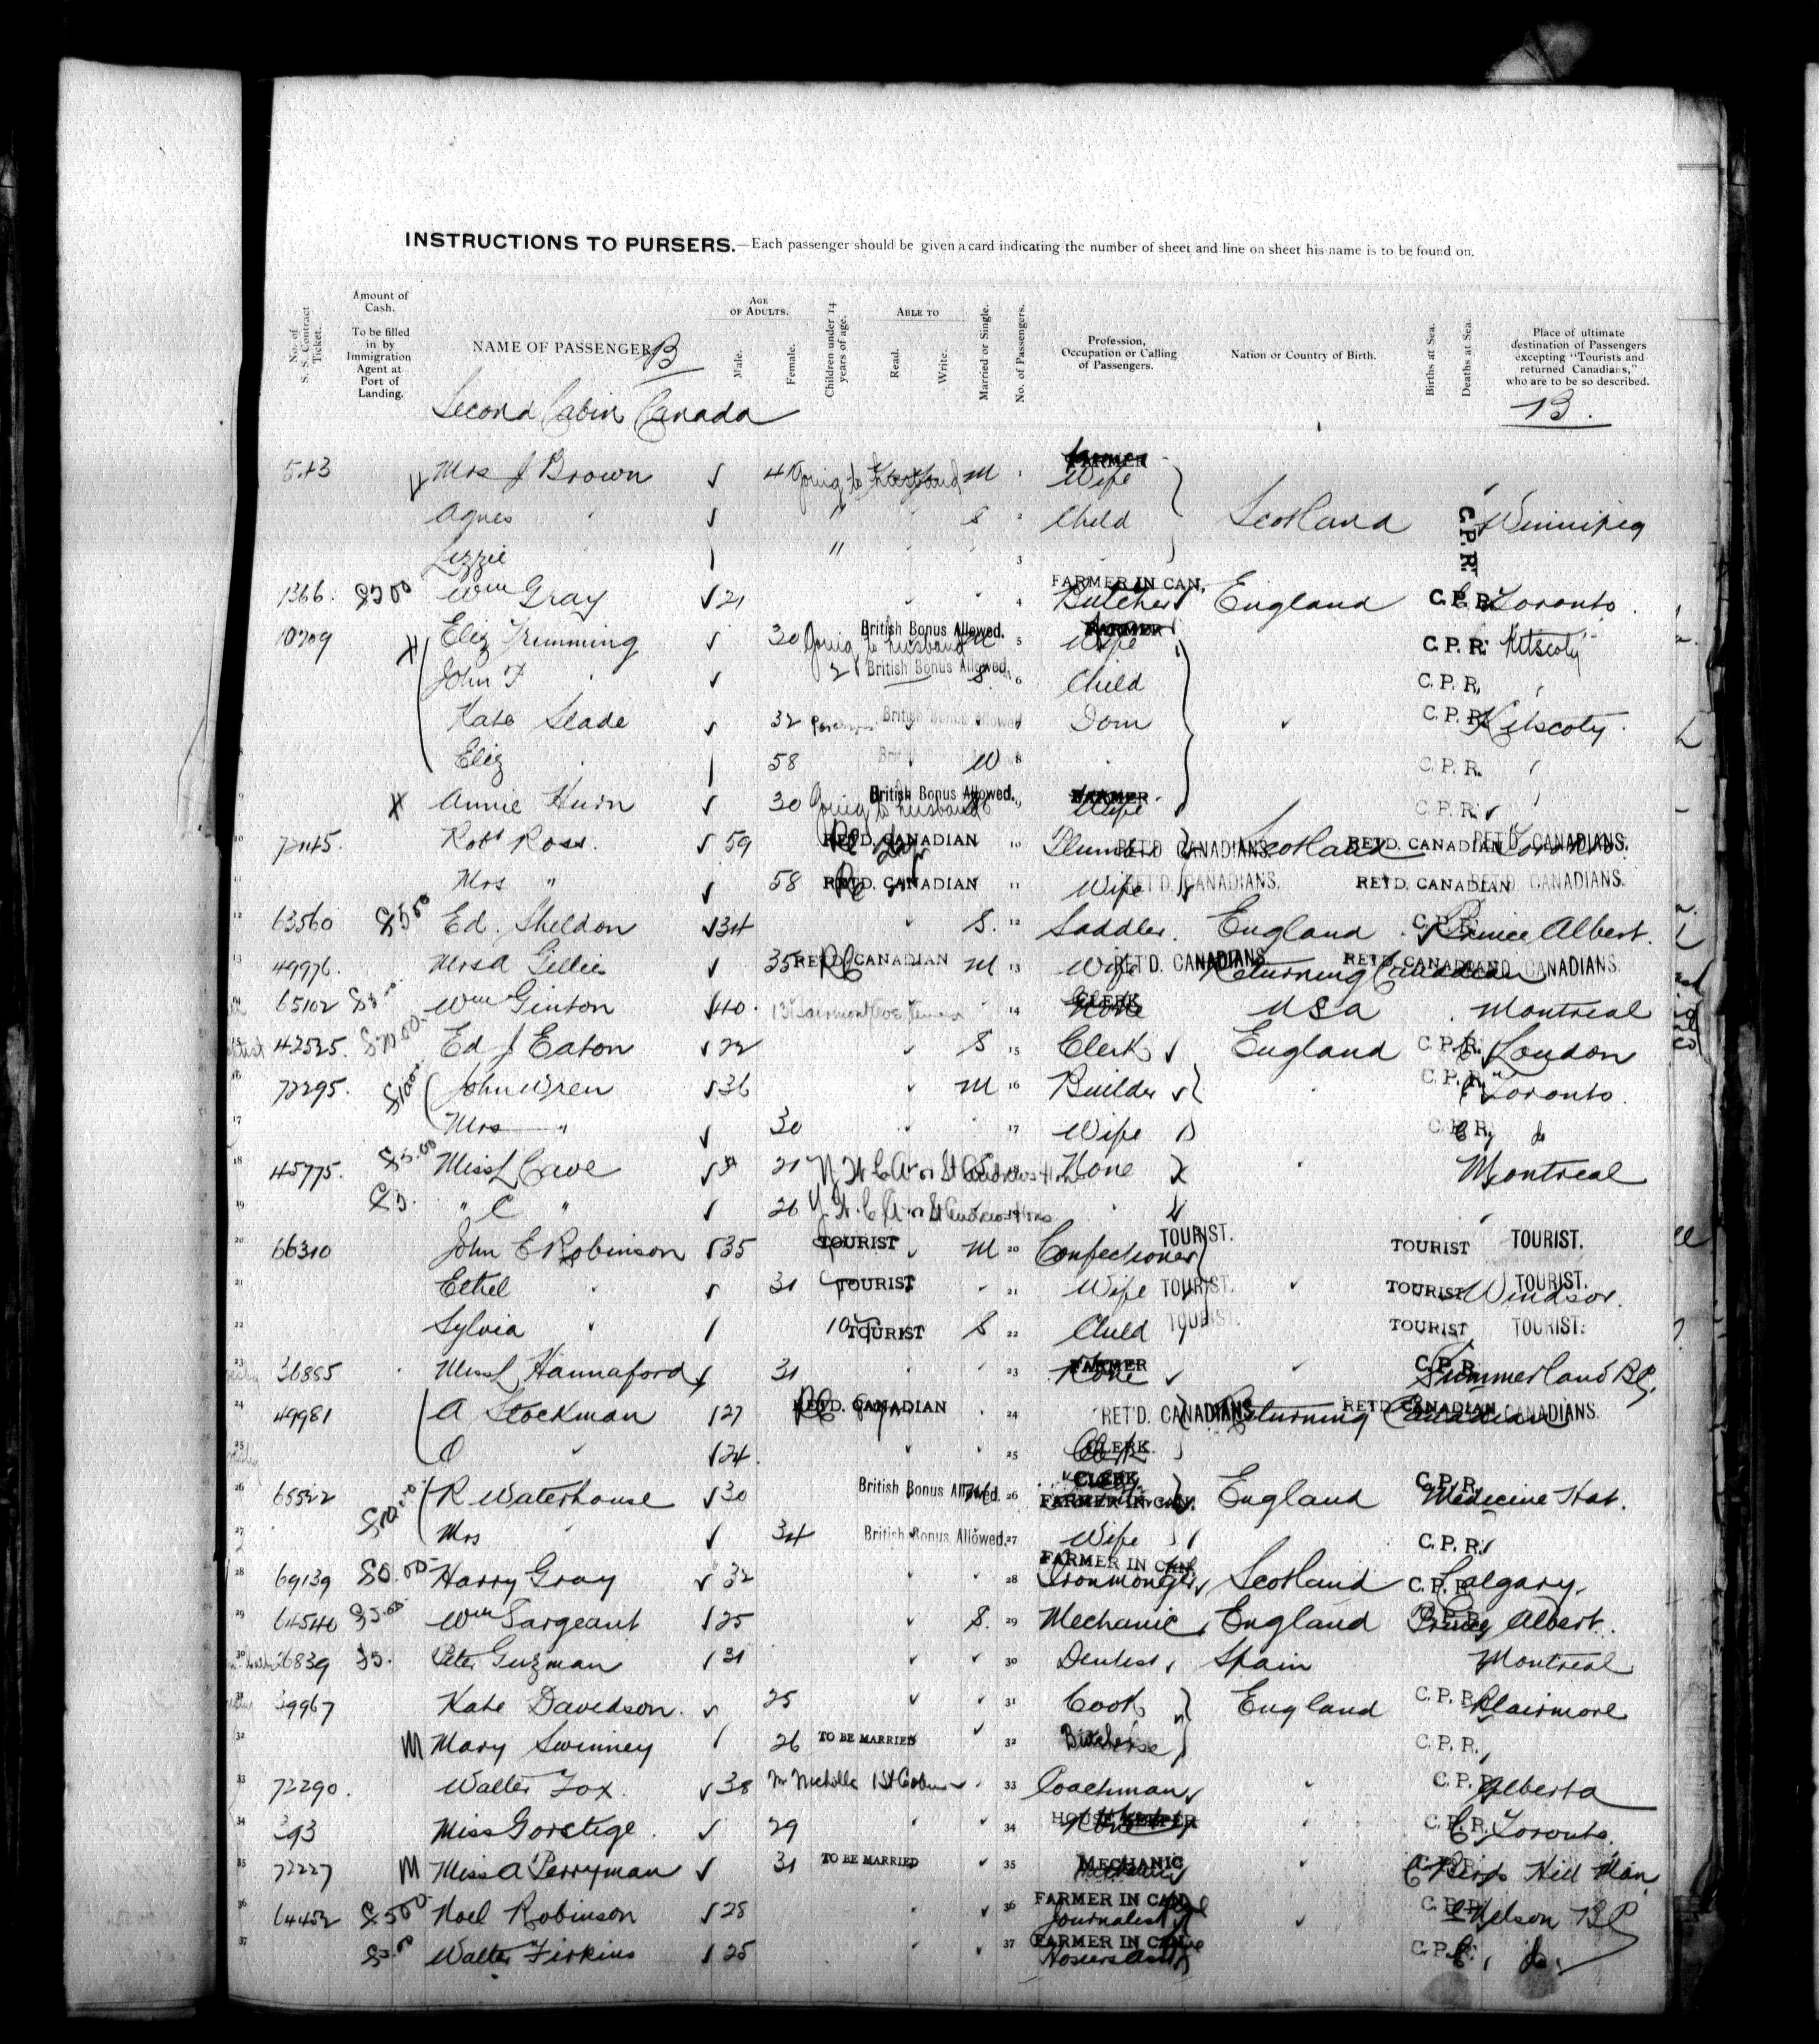 INSTRUCTIONS TO PURSERS.—Each passenger should be given a card indicating the number of sheet and line on sheet his name is to be found on.
No. of S. S. Contract Ticket. Amount of Cash. To be filled in by Immigration Agent at Port of Landing. NAME OF PASSENGER B AGE OF ADULTS. Male. Female. Children under 14 years of age. ABLE TO Read. Write. Married or Single. No. of Passengers. Profession, Occupation or Calling of Passengers. Nation or Country of Birth. Births at Sea. Deaths at Sea. Place of ultimate destination of Passengers excepting "Tourists and returned Canadians," who are to be so described.
Second Cabin Canada B.
Mrs J Brown Going to Husband M 1 FARMER Wife
Agnes " S 2 Child Scotland C.P.R. Winnipeg
Lizzie " 3
1366. Wm Gray 21 4 FARMER IN CAN. Butcher England C.P.R. Toronto.
10709 Eliz Trimming 30 Going to husband British Bonus Allowed. M 5 FARMER Wife C.P.R. Kitscoty
John F 2 British Bonus Allowed. S. 6 Child C.P.R.
Kate Slade 32 British Bonus Allowed Dom C.P.R. Kitscoty.
8 Eliz 58 W 8 C.P.R.
9 X Annie Hurn 30 Going to husband British Bonus Allowed. 9 FARMER Wife C.P.R.
10 Robt Ross. 59 RET'D. CANADIAN 10 Plumber RET'D CANADIANS. Scotland RET'D. CANADIAN Toronto RET'D. CANADIANS.
11 Mrs " 58 RET'D. CANADIAN 11 Wife RET'D. CANADIANS. RET'D. CANADIAN RET'D. CANADIANS.
12 63560 $500 Ed. Sheldon 34 S. 12 Saddler. England C.P.R. Prince Albert.
13 49976. Mrs A Gillies 35 RET'D. CANADIAN M 13 Wife RET'D. CANADIANS. Returning Canadian RET'D. CANADIAN RET'D. CANADIANS.
65102 Wm Ginton 40. 14 CLERK None USA Montreal
42525. Ed J Eaton 22 S 15 Clerk England C.P.R. London
16 72295. John Wren 36 M 16 Builder C.P.R. Toronto.
17 Mrs " 30 17 Wife C.P.R. do
18 45775. $5.00 Miss L Cave 21 None Montreal
19 $5. " C " 26
20 66310 John E Robinson 35 TOURIST M 20 Confectioner TOURIST. TOURIST TOURIST.
21 Ethel 31 TOURIST 21 Wife TOURIST. TOURIST Windsor. TOURIST.
22 Sylvia 10 TOURIST S 22 Child TOURIST. TOURIST TOURIST.
23 36885 Miss L Hannaford 31 23 FARMER None C.P.R. Summerland BC.
24 49981 A Stockman 27 RET'D. CANADIAN 24 RET'D. CANADIANS Returning Canadian RET'D. CANADIAN CANADIANS.
25 O 24. 25 CLERK.
26 65522 R Waterhouse 30 British Bonus Allowed. 26 CLERK FARMER IN CAN. England C.P.R. Medicine Hat.
27 Mrs 34 British Bonus Allowed. 27 Wife C.P.R.
28 69139 Harry Gray 32 28 FARMER IN CAN. Ironmonger Scotland C.P.R. Calgary.
29 64540 $5.00 Wm Sargeant 25 S. 29 Mechanic England C.P.R. Prince Albert.
30 26839 $5. Peter Guzman 31 30 Dentist Spain Montreal
39967 Kate Davidson. 25 31 Cook England C.P.R. Blairmore
32 M Mary Swinney 26 TO BE MARRIED 32 C.P.R.
33 72290. Walter Fox. 38 33 Coachman C.P.R. Alberta
34 393 Miss Goretige. 29 34 HOUSEKEEPER None C.P.R. Toronto.
35 72227 M Miss A Perryman 31 TO BE MARRIED 35 MECHANIC C.P.R. Birds Hill Man
36 64452 $500 Noel Robinson 28 36 FARMER IN CAN. Journalist C.P.R. Nelson BC
37 $5.00 Walter Firkins 25 37 FARMER IN CAN. C.P.R. do.